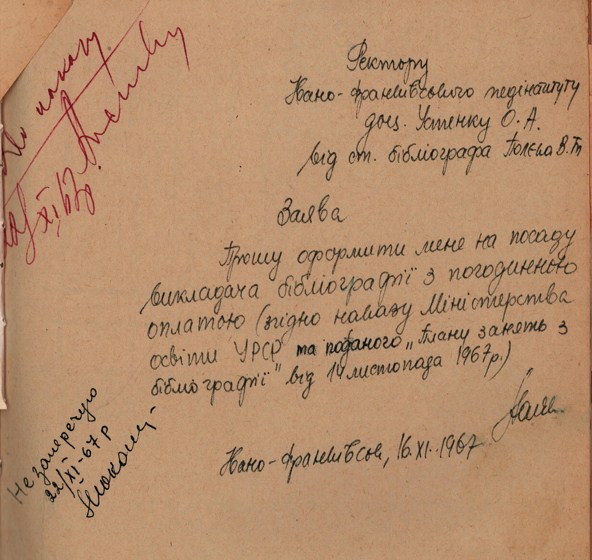 До наказу
22/XI 67р
Ректору
Івано-Франківського педінституту
доц. Устенку О. А.
від ст. бібліографа Полєка В. Т.
Заява
Прошу оформити мене на посаду
викладача бібліографії з погодинною
оплатою (згідно наказу Міністерства
освіти УРСР та поданого „Плану занять з
бібліографії" від 14 листопада 1967р.)
Івано-Франківськ, 16.XI.1967
Не заперечую
22/XI-67 р